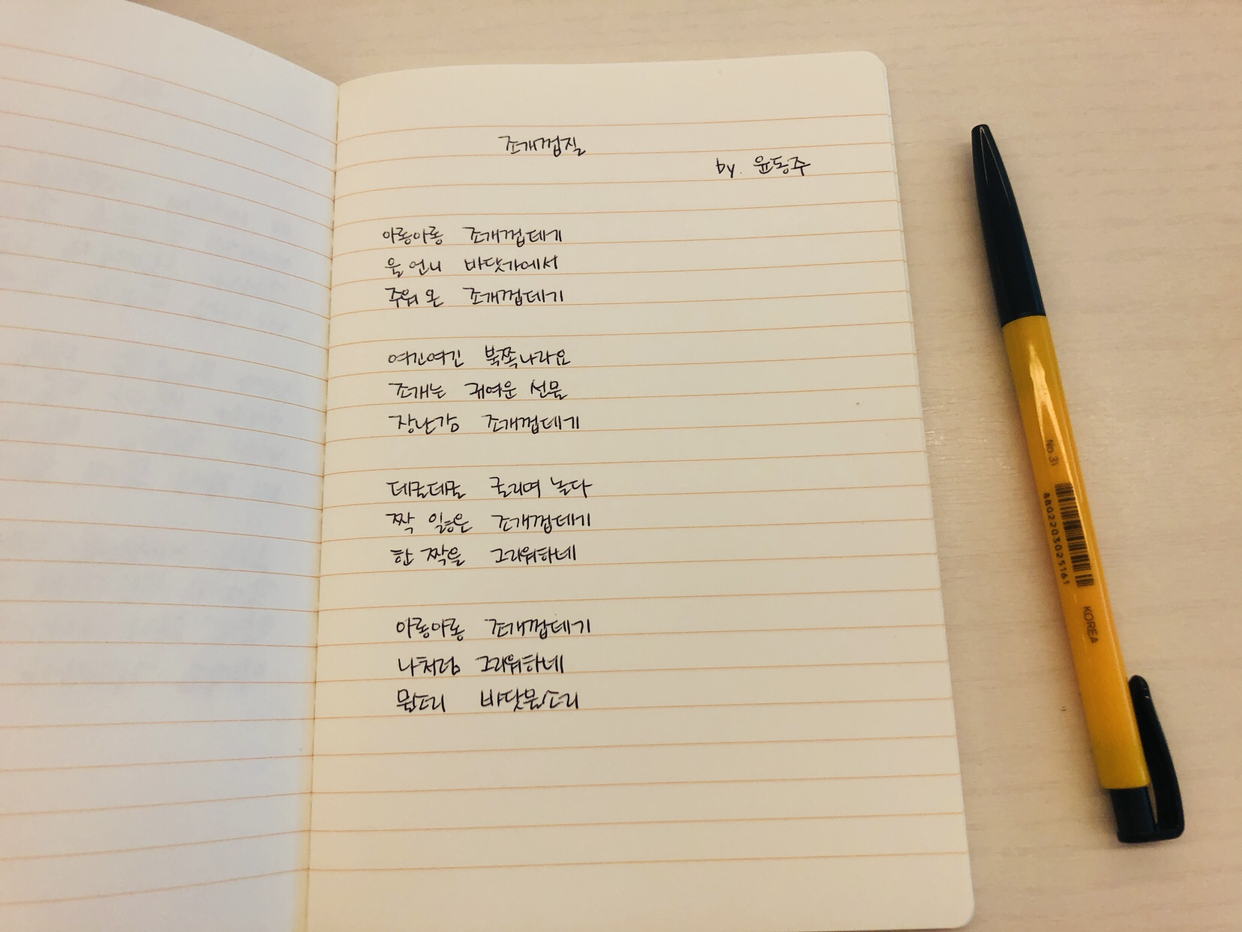 조개껍질
by. 윤동주
아롱아롱 조개껍데기
울 언니 바닷가에서
주워 온 조개껍데기
여긴여긴 북쪽나라요
조개는 귀여운 선물
장난감 조개껍데기
데굴데굴 굴리며 놀다
짝 잃은 조개껍데기
한 짝을 그리워하네
아롱아롱 조개껍데기
나처럼 그리워하네
물소리 바닷물소리
No.31
8802203025161
KOREA